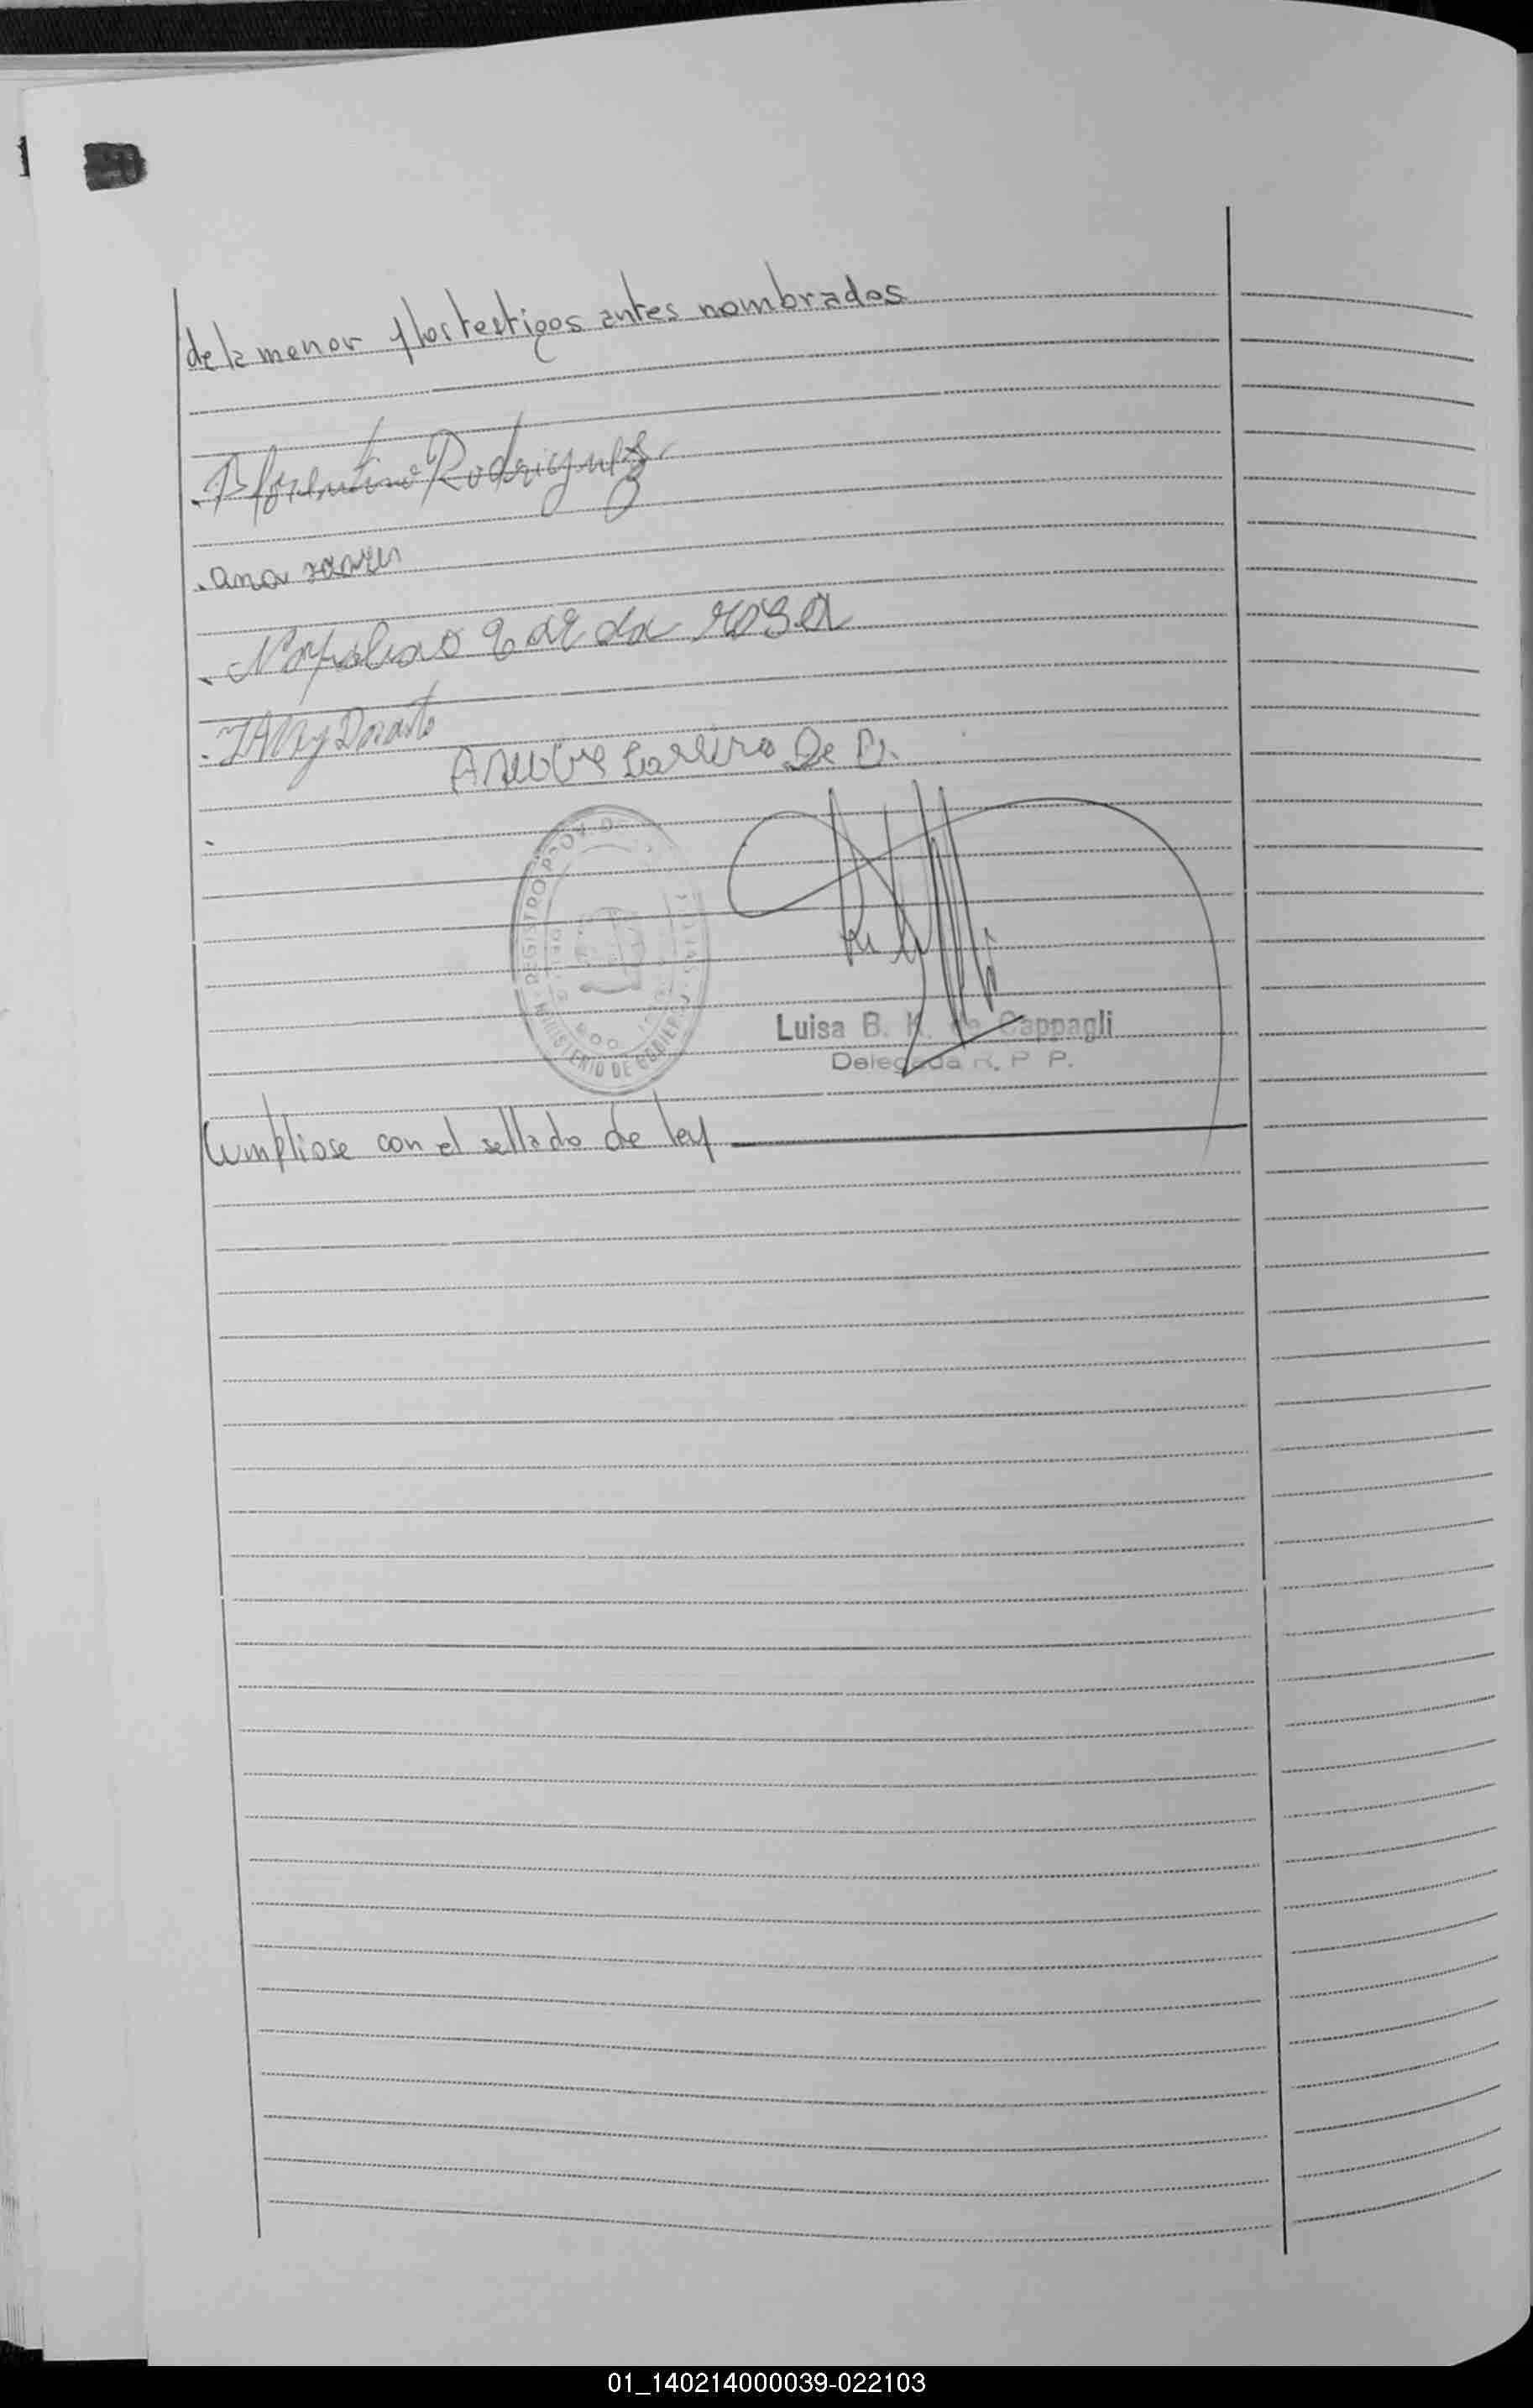 de la menor y los testigos antes nombrados
Florentino Rodriguez
ana
Napoliao da rosa
Duarte
De D.
REGISTRO PROV. D
MINISTERIO DE GOBIER
Luisa B. K. de Cappagli
Delegada R. P. P.
Cumpliose con el sellado de ley
01_140214000039-022103